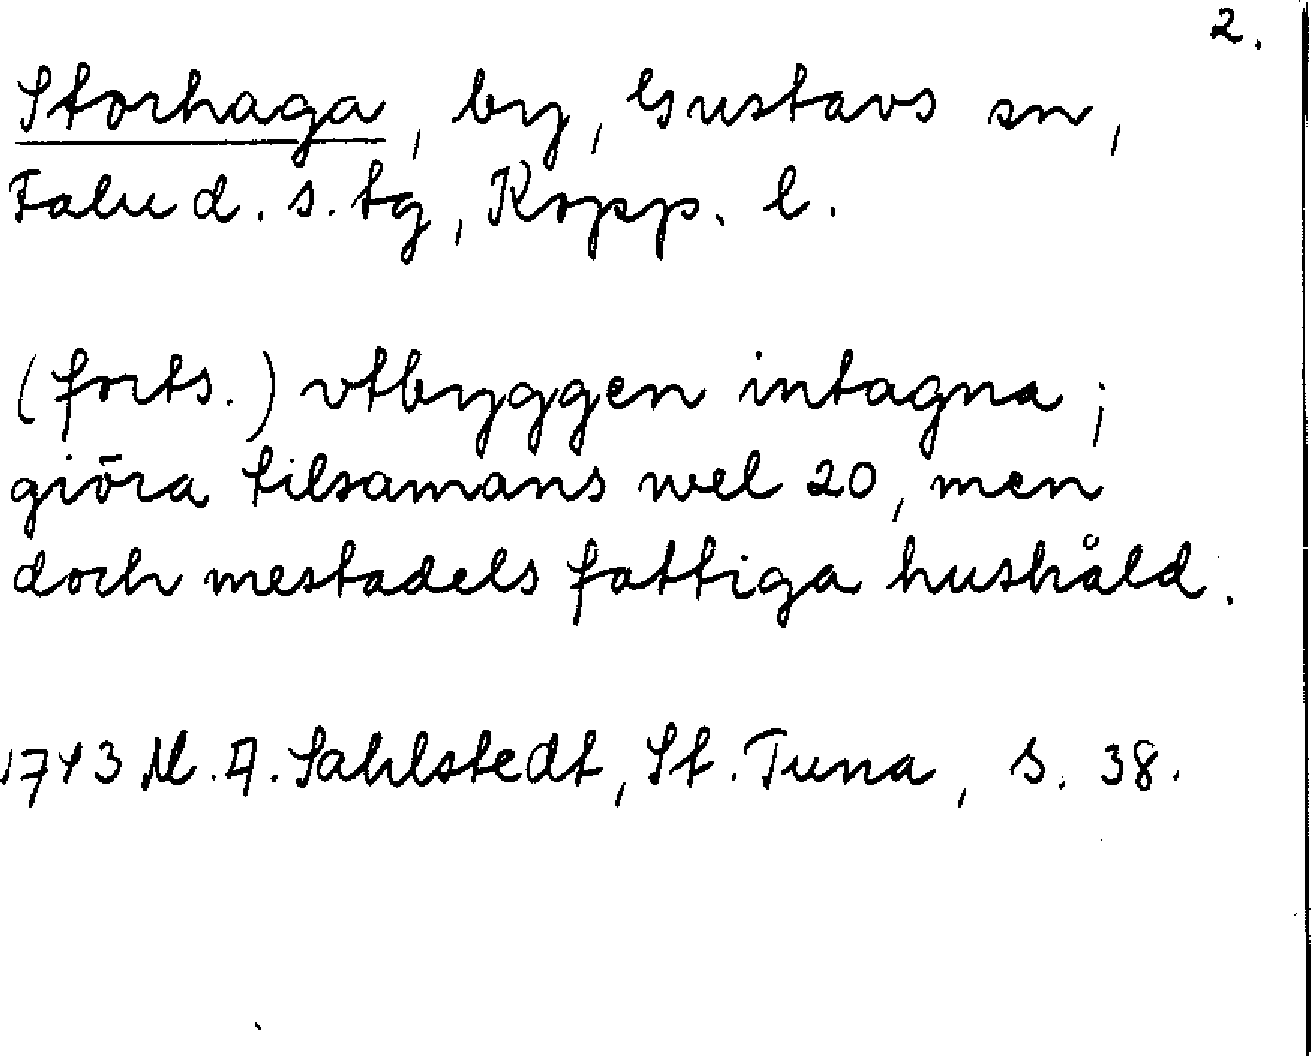 2.
Storhaga, by, Gustavs sn,
Falu d. s. tg, Kopp. l.
(forts.) vtbyggen intagna;
giöra tilsamans wel 20, men
doch mestadels fattiga hushåld.
1743 M. A. Sahlstedt, St. Tuna, s. 38.